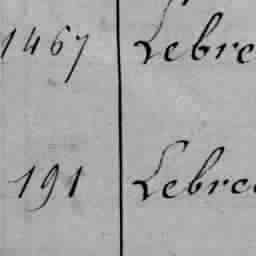 1467 Lebre
191 Lebre